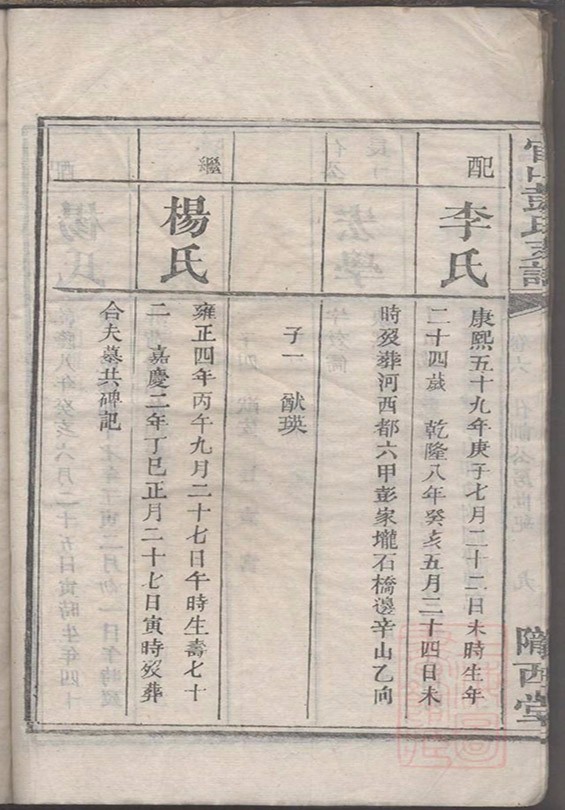 官山彭氏支譜
隴西堂
配
李氏
康熙五十九年庚子七月二十二日未時生年
二十四歲 乾隆八年癸亥五月二十四日未
時歿葬河西都六甲彭家壠石橋邊辛山乙向
子一 猷瑛
繼
楊氏
雍正四年丙午九月二十七日午時生壽七十
二 嘉慶二年丁巳正月二十七日寅時歿葬
合夫墓共碑記